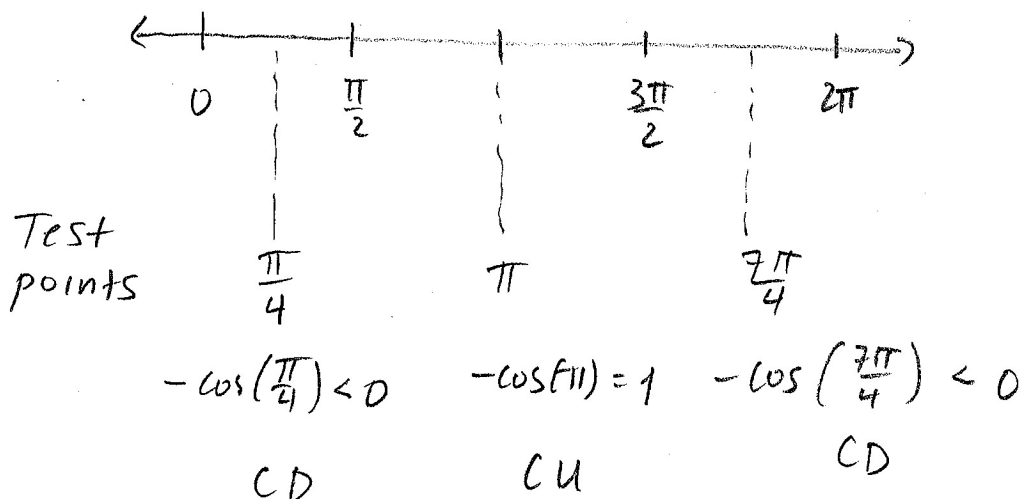 0 π/2 3π/2 2π
Test
points π/4 π 7π/4
-cos(π/4) < 0 -cos(π) = 1 -cos(7π/4) < 0
CD CU CD